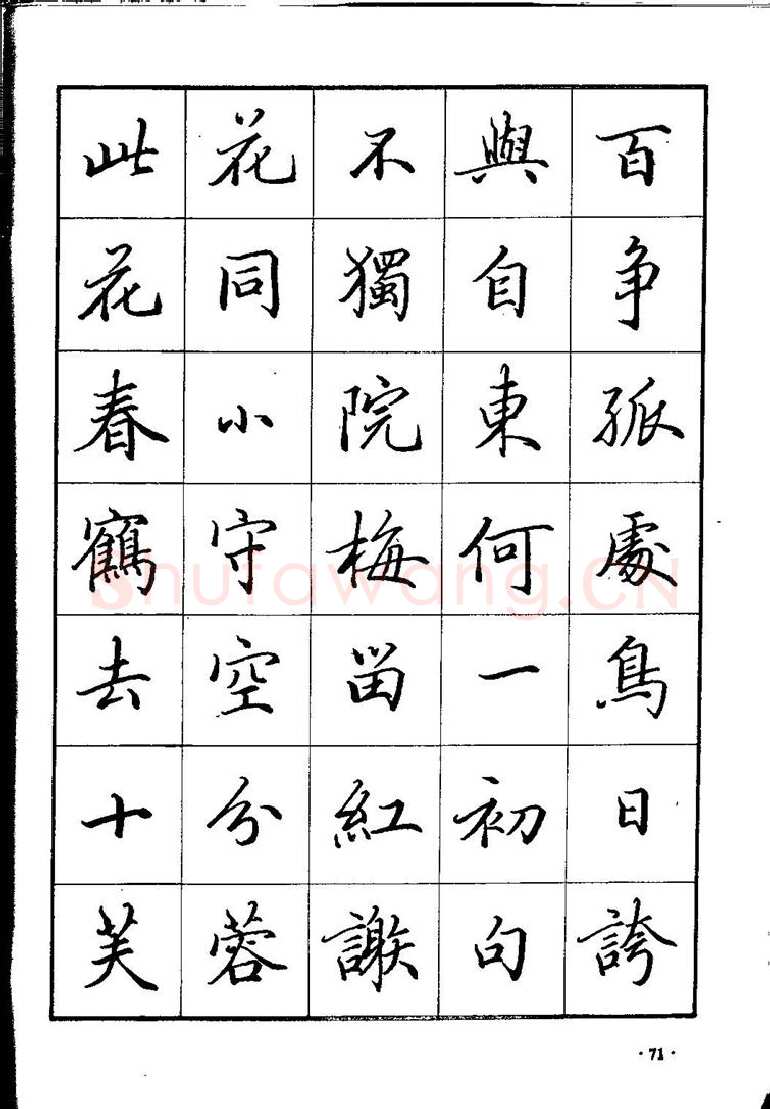 此花不與百
花同獨自争
春小院東孤
鶴守梅何處
去空留一鳥
十分紅初日
芙蓉謝句誇
Shufawang.CN
·71·